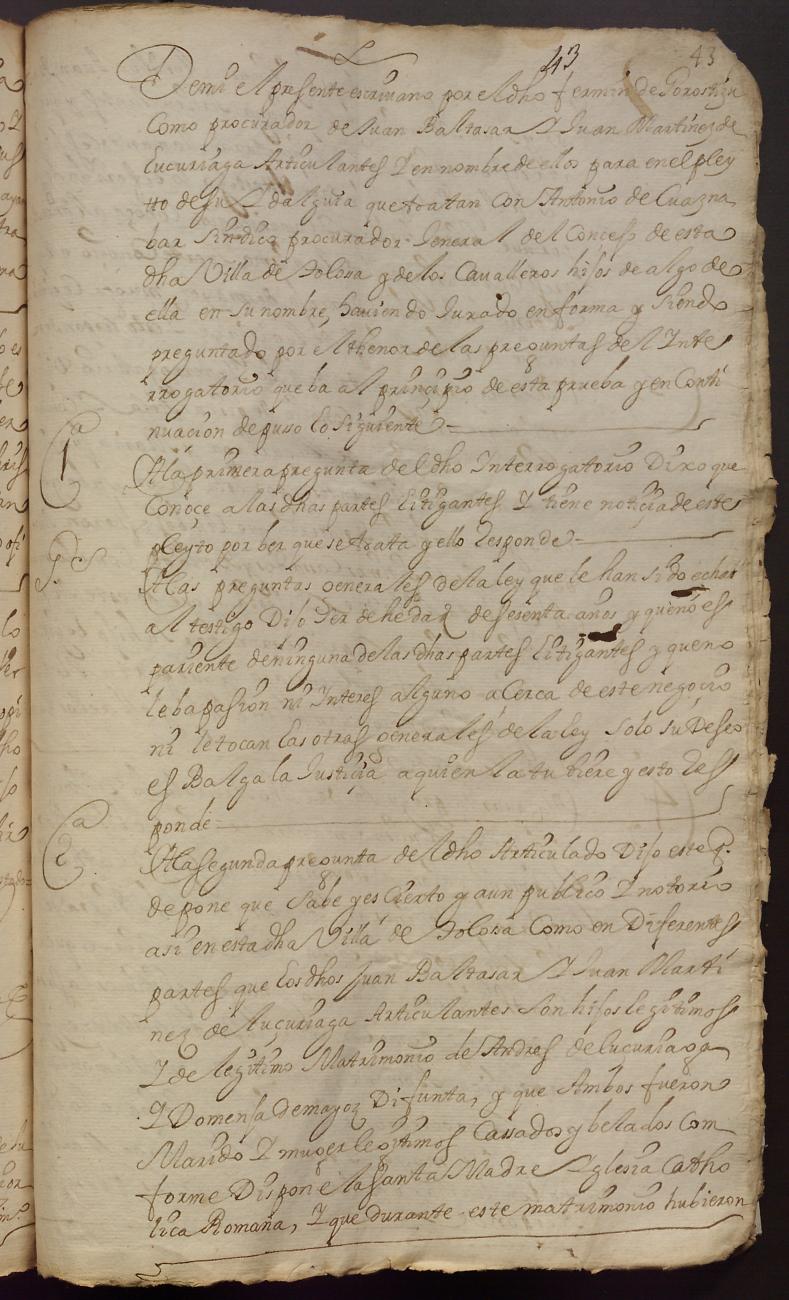 43 43
De mi el presente escriuano por el dho fermin de Gorostizu
Como procurador de Juan Baltasar Y Juan Martinez de
lucuriaga Articulantes Y en nombre de ellos para en el pley
tto de su Ydalguia que tratan Con Antonio de Cuazna
bar Sindico procurador General del Concejo de esta
dha Villa de Tolosa y de los Cavalleros hijos de algo de
ella en su nombre, haviendo Jurado en forma y siendo
preguntado por el thenor de las preguntas del Inte
rrogatorio que ba al principio de esta prueba y en Conti
nuacion depuso lo siguiente
1a A la primera pregunta del dho Interrogatorio Dixo que
Conoce a las dhas partes litigantes Y tiene noticia de este
pleyto por ber que se trata y ello Responde
Gs A las preguntas generales de la ley que le han sido echas
al testigo Dijo ser de hedad de sesenta años y que no es
pariente de ninguna de las dhas partes litigantes y que no
le ba pasion ni Interes alguno a Cerca de este negocio
ni le tocan las otras generales de la ley solo su Deseo
es Balga la Justicia a quien la tu biere y esto Res
ponde
2a A la segunda pregunta del dho Articulado Dijo este q.
depone que sabe y es Cierto y aun publico Y notorio
asi en esta dha Villa de Tolosa Como en Diferentes
partes que los dhos Juan Baltasar Y Juan Marti
nez de lucuriaga Articulantes son hijos legitimos
Y de legitimo Matrimonio de Andres de lucuriaga
Y Domenja de mayoz Difunta, y que Ambos fueron
Marido Y muger legitimos Cassados y belados Com
forme Dispone la santa Madre Yglesia Catho
lica Romana, Y que durante este matrimonio hubieron